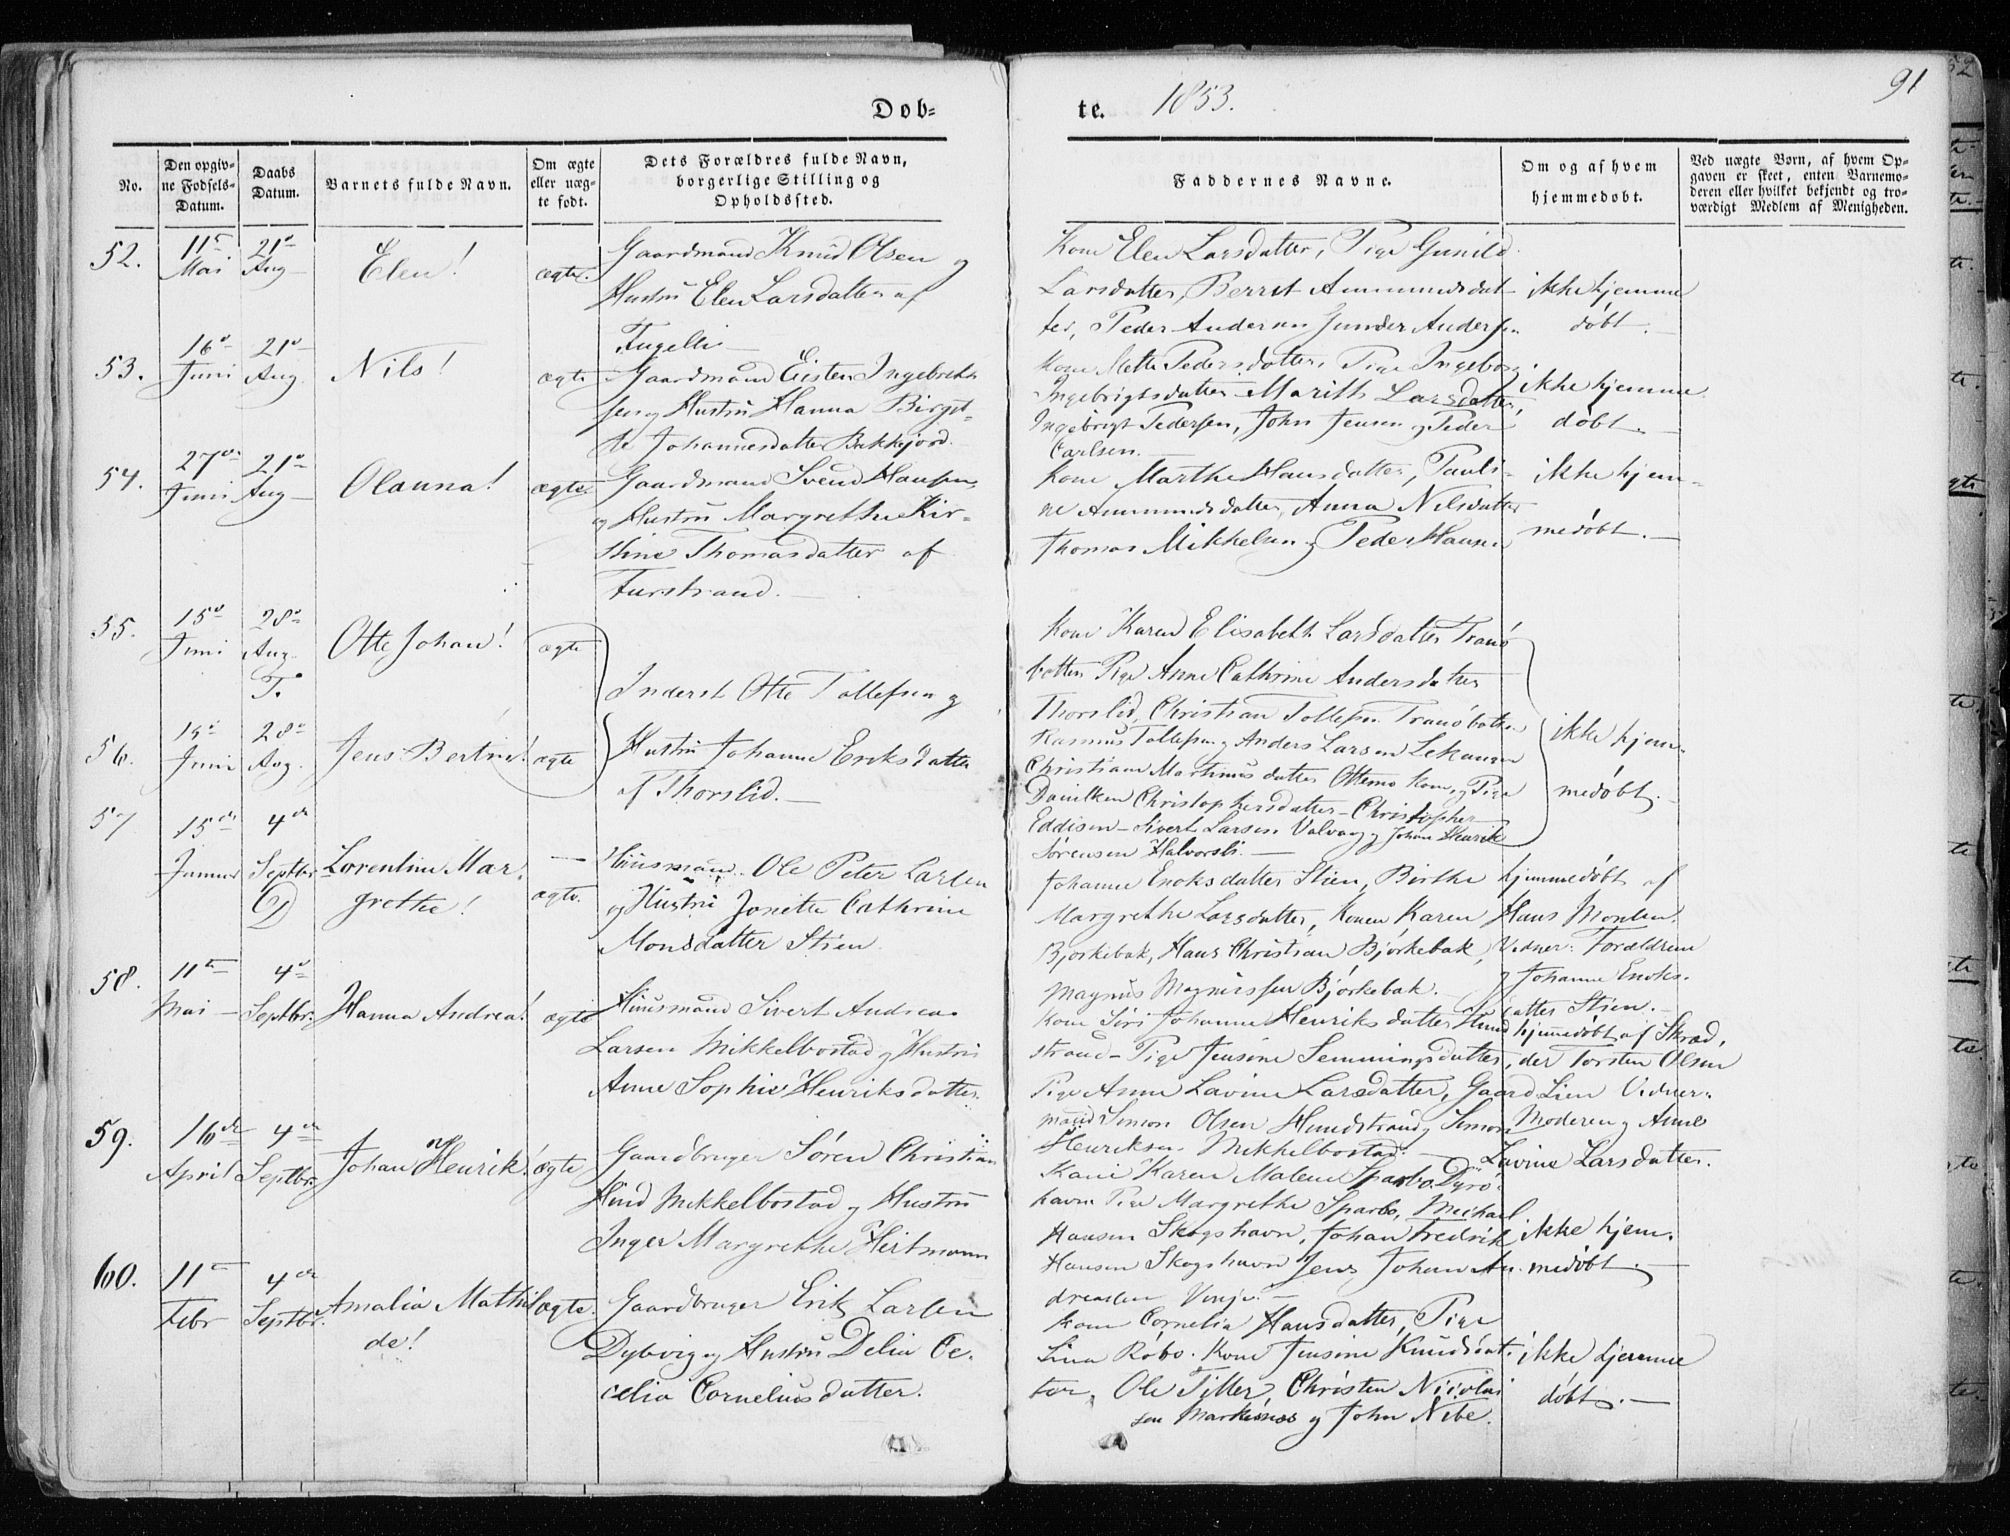 Døb-
te. 1853.
91
No.
Den opgiv-
ne Fødsels-
Datum.
Daabs
Datum.
Barnets fulde Navn.
Om ægte
eller uæg-
te født.
Dets Forældres fulde Navn,
borgerlige Stilling og
Opholdssted.
Faddernes Navne.
Om og af hvem
hjemmedøbt.
Ved uægte Børn, af hvem Op-
gaven er skeet, enten Barnemo-
deren eller hvilket bekjendt og tro-
værdigt Medlem af Menigheden.
52.
11te
Mai
21de
Aug
Elen!
ægte.
Gaardmand Knud Olsen og
Hustru Elen Larsdatter af
Fugelli
Kone Elen Larsdatter, Pige Gunild
Larsdatter, Berret Ammundsdat-
ter, Peder Andersen Gunder Andersen
ikke hjemme
døbt.
53.
16de
Juni
21de
Aug.
Nils!
ægte
Gaardmand Eisten Ingebrikt-
sen og Hustru Hanna Birgit-
te Johannesdatter Bakkejord.
Kone Mette Pedersdatter, Pige Ingeborg
Ingebrigtsdatter Marith Larsdatter,
Ingebrigt Pedersen, John Jensen og Peder
Carlsen.
ikke hjemme
døbt.
54.
27de
Juni
21de
Aug
Olanna!
ægte
Gaardmand Svend Hansen
og Hustru Margrethe Kir-
stine Thomasdatter af
Furstrand.
Kone Marthe Hansdatter, Pauli-
ne Ammundsdatter, Anna Nilsdatter
Thomas Mikkelsen og Peder Hansen
ikke hjem-
medøbt.
55.
15de
Juni
28de
Aug.
T.
Otte Johan!
ægte
Inderst Otte Tollefsen og
Kone Karen Elisabeth Larsdatter Tranø
botten Pige Anne Cathrine Andersdatter
Thorslid, Christian Tollefsen Tranøbotten
Rasmus Tollefsen og Anders Larsen Lekangen
56.
15de
Juni
28de
Aug.
Jens Bertin!
ægte
Hustru Johanne Eriksdatter
af Thorslid.
Christiane Martinusdatter Ottemo Kone, og Pige
Danilken Christophersdatter - Christopher
Eddisen - Sivert Larsen Valvaag og Johan Henrik
Sørensen Halvorsli.
ikke hjem-
medøbt.
57
15de
Januar
4de
Septbr.
Lorentine Mar-
grethe!
ægte.
Huusmand Ole Peter Larsen
og Hustru Jonette Cathrine
Monsdatter Stien.
Johanne Enoksdatter Stien, Birthe
Margrethe Larsdatter, Konen Karen
Bjørkebak, Hans Christian Bjørkebak,
Magnus Magnussen Bjørkebak.
hjemmedøbt af
Hans Monsen.
Vidner: Forældrene
og Johanne Enoks-
datter Stien.
58.
11te
Mai
4de
Septbr.
Hanna Andrea!
ægte
Huusmand Sivert Andreas
Larsen Mikkelbostad og Hustru
Anne Sophie Henriksdatter.
Kone Siri Johanne Henriksdatter Hund
strand - Pige Jensine Semmingsdatter,
Pige Anne Lavine Larsdatter, Gaard
mand Simon Olsen Hundstrand og Simon
Henriksen Mikkelbostad.
hjemmedøbt af Skræd-
der Torsten Olsen
Lien Vidner.
Moderen og Anne
Lavine Larsdatter.
59.
16de
April
4de
Septbr.
Johan Henrik!
ægte
Gaardbruger Søren Christian
Hind Mikkelbostad og Hustru
Inger Margrethe Hertmann
Kone Karen Malene Sparbo Dyrø-
havn Pige Margrethe Sparbo, Michael
Hansen Skogshavn, Johan Fredrik
Hansen Skogshavn Jens Johan An-
dreassen Vinje.
ikke hjem-
medøbt.
60.
11te
Febr
4de
Septbr.
Amalia Mathil
de!
ægte.
Gaardbruger Erik Larsen
Dybvig og Hustru Delia Ce-
celia Corneliusdatter.
Kone Cornelia Hansdatter, Pige
Lina Røbo. Kone Jensine Knudsdat-
ter, Ole Tiller, Christen Nicolai
sen Markenes og John Nibe.
ikke hjemme
døbt.